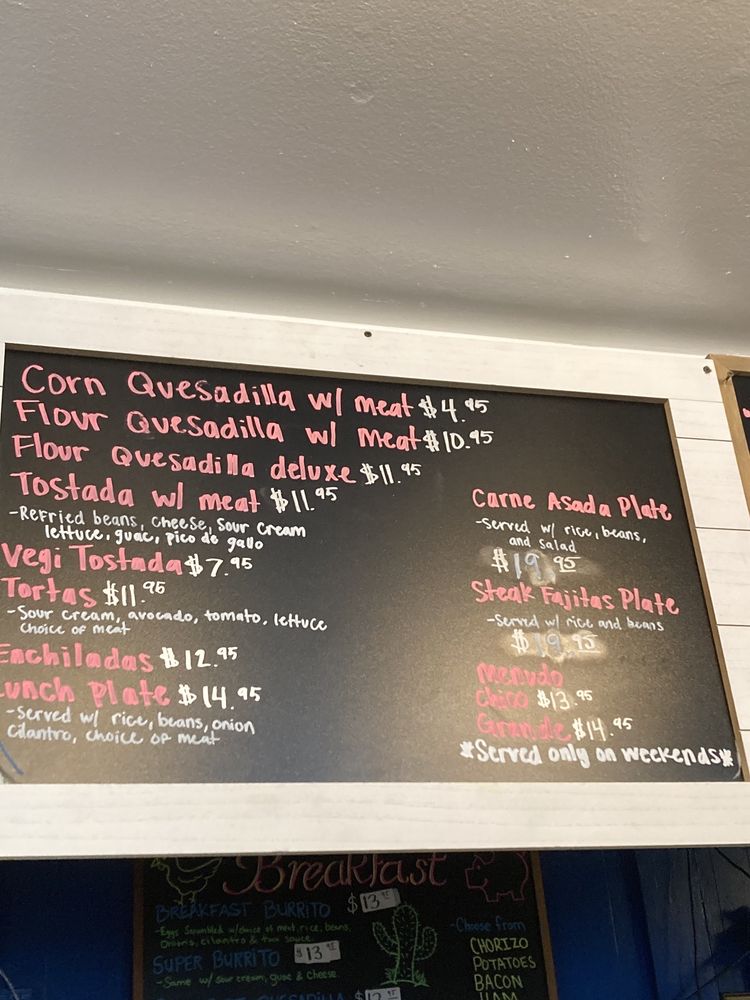 Corn Quesadilla w/ meat $4.95
Flour Quesadilla w/ meat $10.95
Flour Quesadilla deluxe $11.95
Tostada w/ meat $11.95
-Refried beans, cheese, sour cream
lettuce, guac, pico de gallo
Vegi Tostada $7.95
Tortas $11.95
-Sour cream, avocado, tomato, lettuce
choice of meat
Enchiladas $12.95
Lunch Plate $14.95
-Served w/ rice, beans, onion
cilantro, choice of meat
Carne Asada Plate
-Served w/ rice, beans,
and salad
$19.95
Steak Fajitas Plate
-Served w/ rice and beans
$19.95
Menudo
Chico $13.95
Grande $14.95
*Served only on weekends*
Breakfast
BREAKFAST BURRITO $13
-Eggs Scrambled w/choice of meat, rice, beans,
Onions, cilantro &
SUPER BURRITO $13
-Same w/ sour cream, guac & cheese.
QUESADILLA
-Choose from
CHORIZO
POTATOES
BACON
HAM